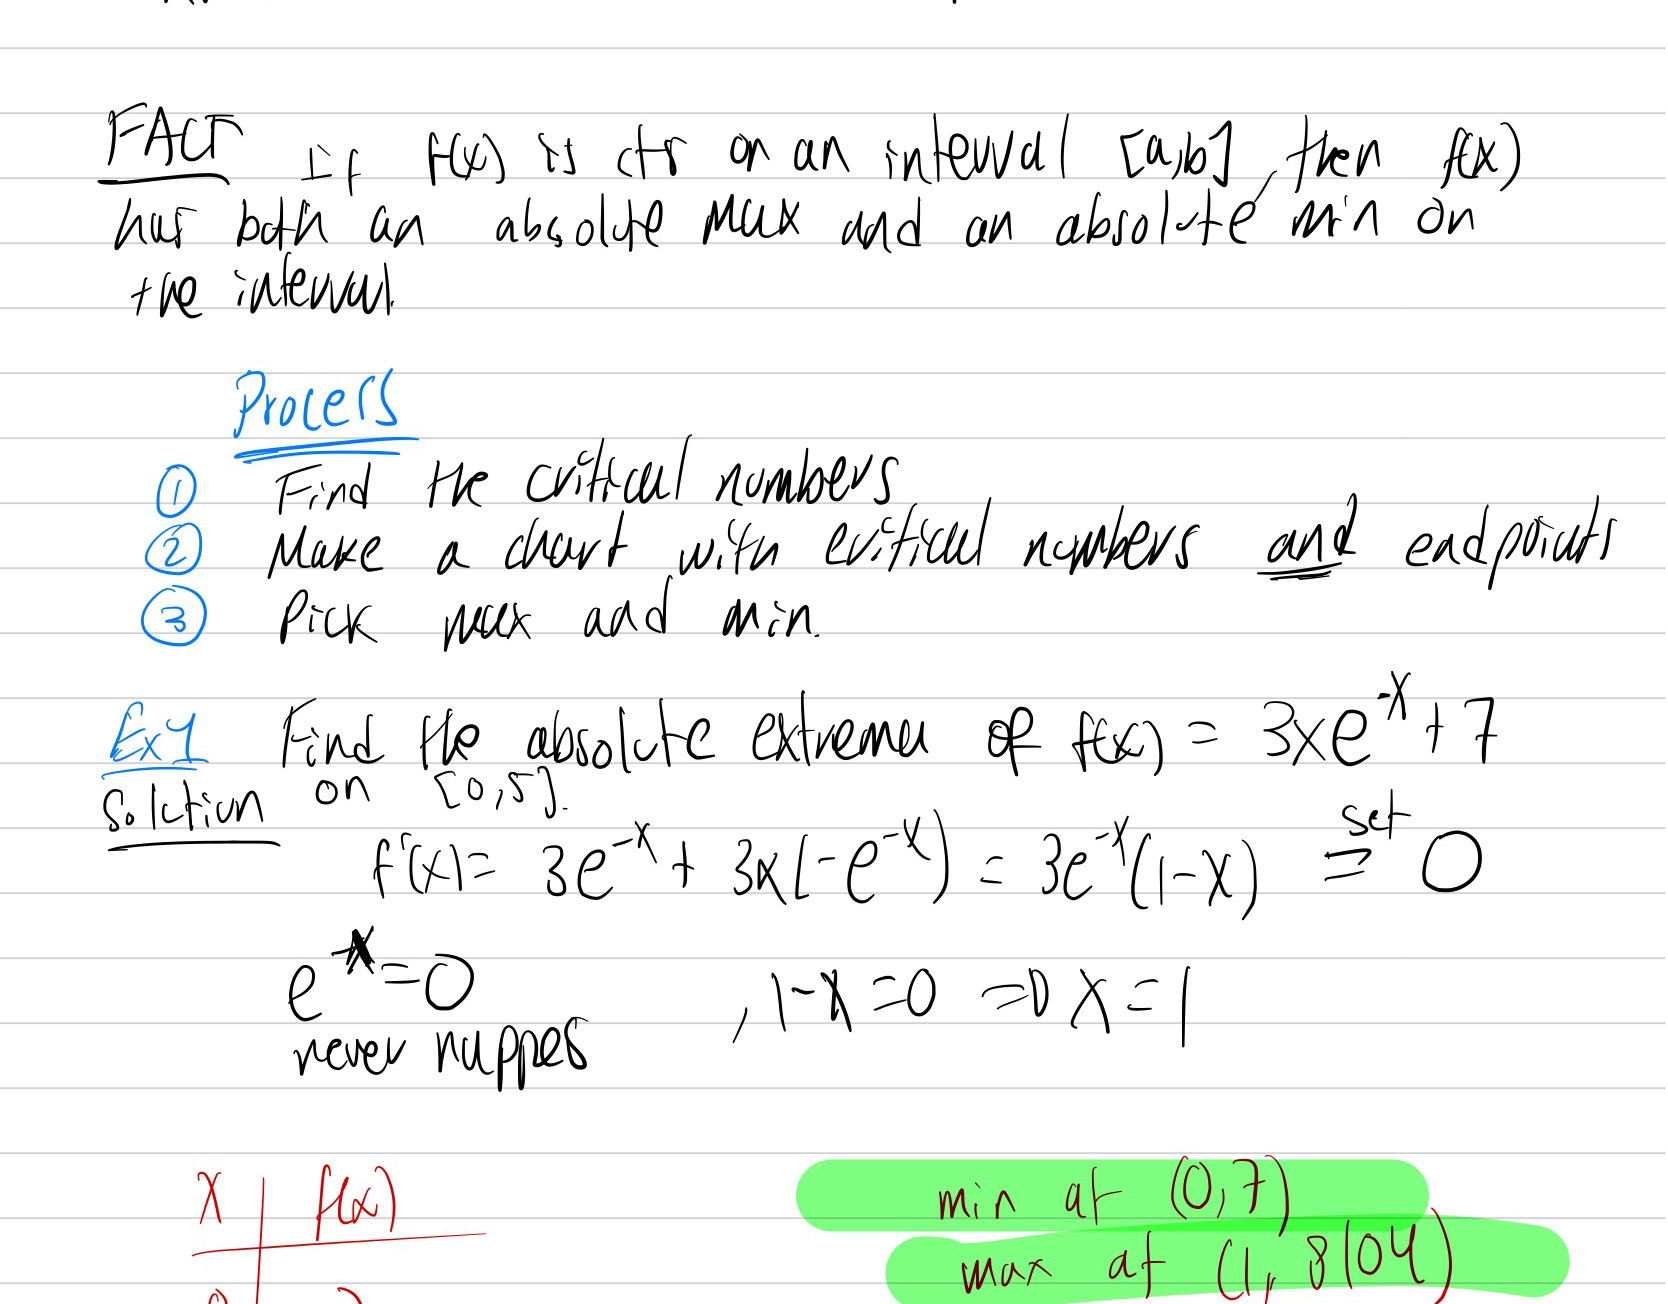 FACT If f(x) is cts on an interval [a,b], then f(x)
has both an absolute max and an absolute min on
the interval.
Process
① Find the critical numbers
② Make a chart with critical numbers and endpoints
③ Pick max and min.
Ex 1 Find the absolute extrema of f(x) = 3xe^-x + 7
on [0,5].
Solution
f'(x) = 3e^-x + 3x(-e^-x) = 3e^-x(1-x) set = 0
e^-x = 0 , 1-x = 0 => x = 1
never happes
x | f(x)
min at (0,7)
max at (1, 8104)